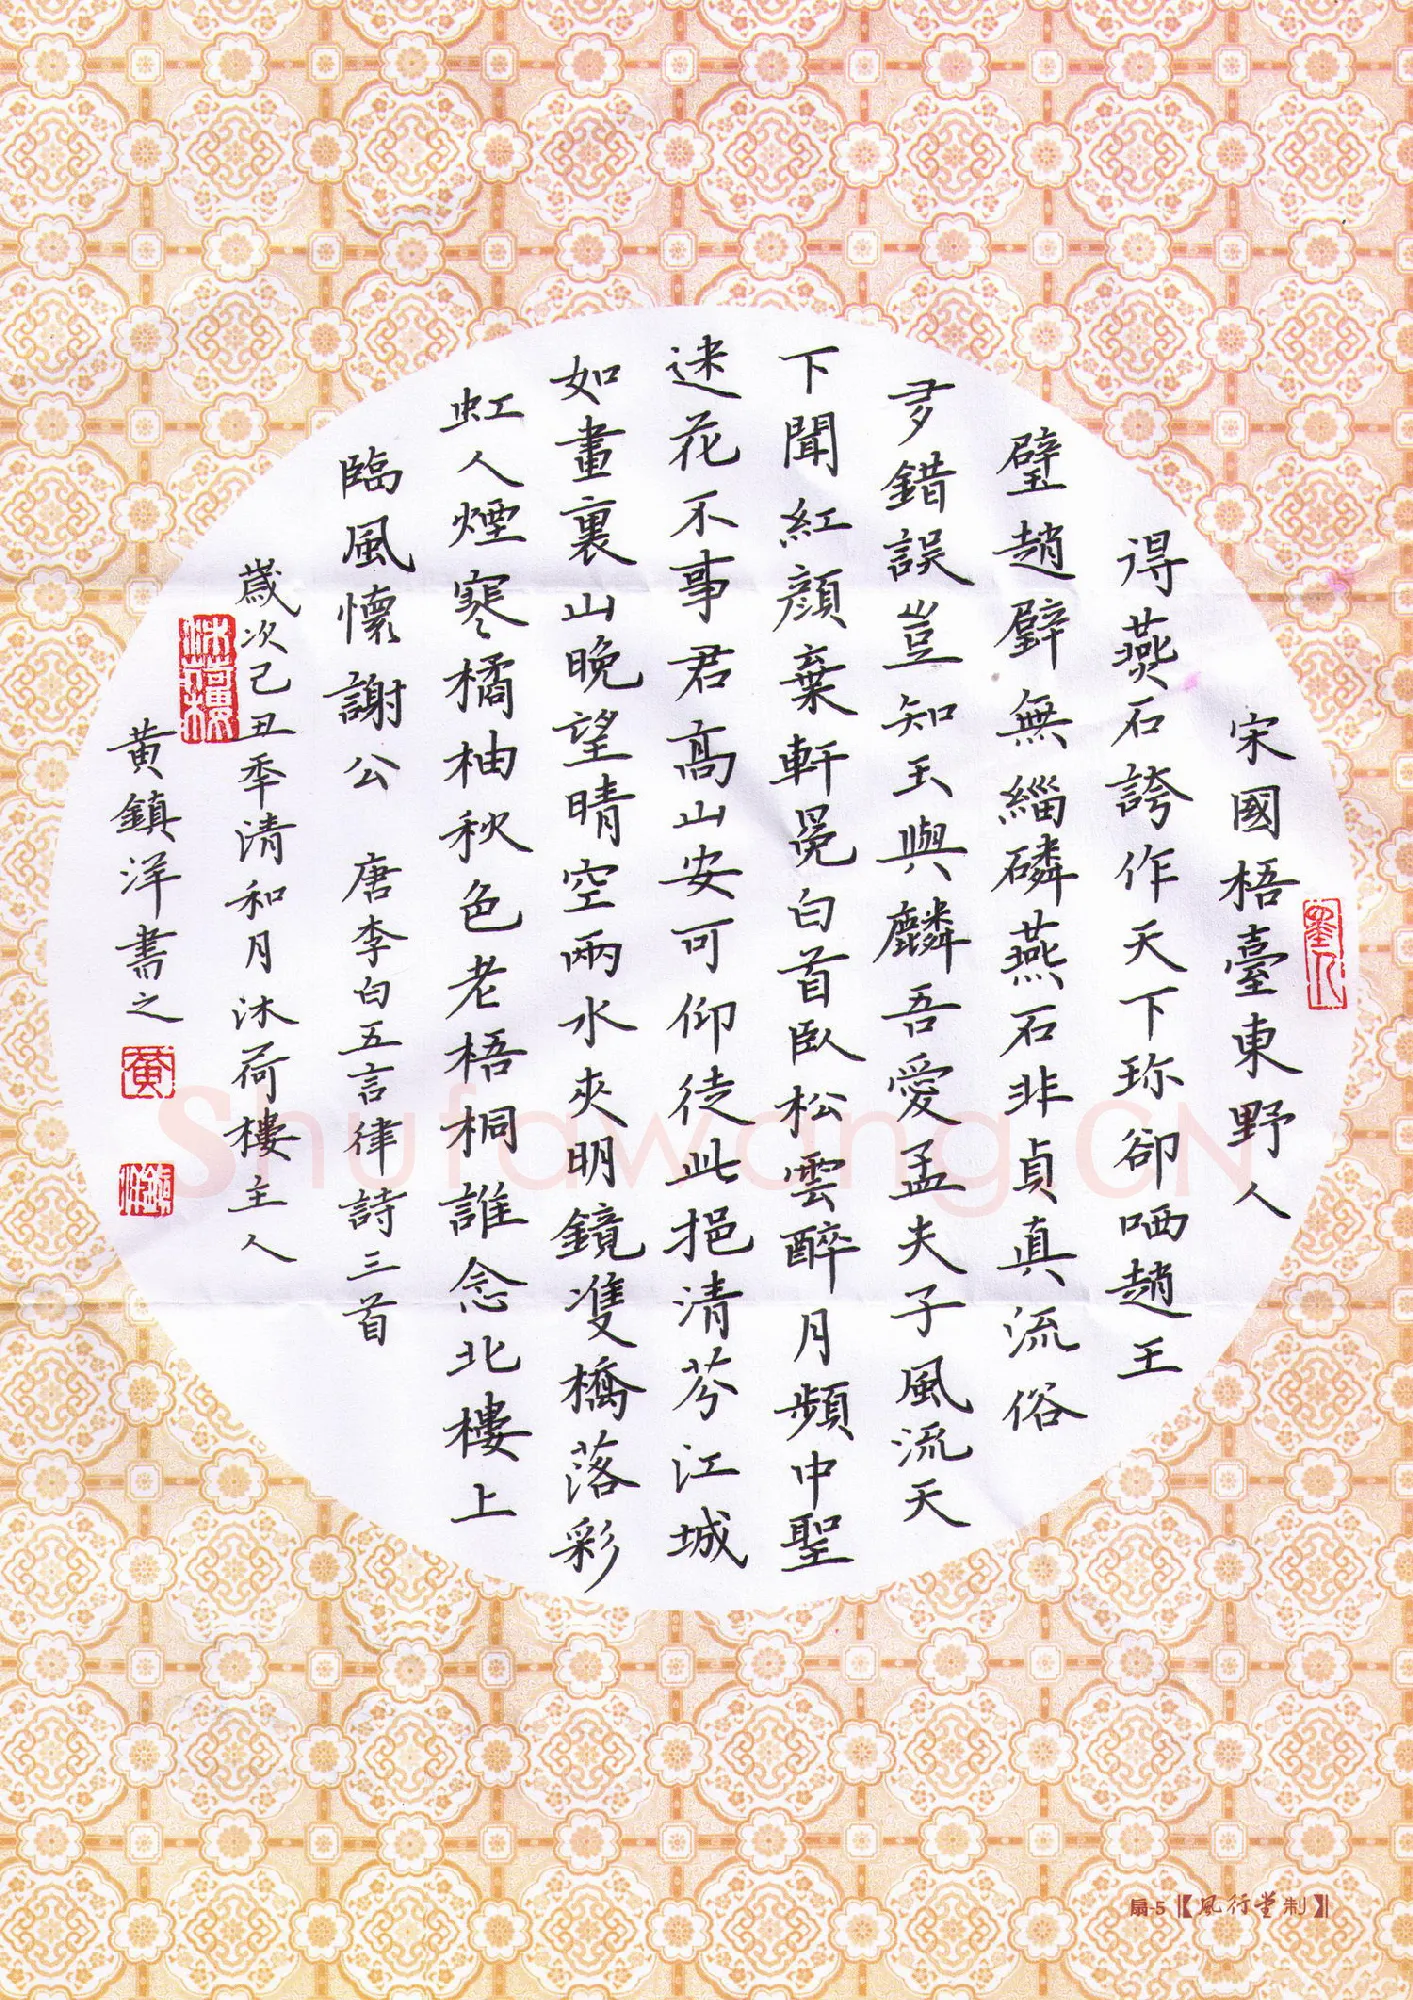 宋國梧臺東野人
得燕石誇作天下珎卻哂趙王
璧趙璧無緇磷燕石非貞真流俗
多錯誤豈知玉與麟吾愛孟夫子風流天
下聞紅顏棄軒冕白首臥松雲醉月頻中聖
迷花不事君高山安可仰徒此挹清芬江城
如畫裏山晚望晴空兩水夾明鏡雙橋落彩
虹人煙寒橘柚秋色老梧桐誰念北樓上
臨風懷謝公 唐李白五言律詩三首
歲次己丑季清和月沐荷樓主人
黃鎮洋書之
沐荷樓
黃
鎮洋
Shufawang.CN
扇-5【風行堂制】